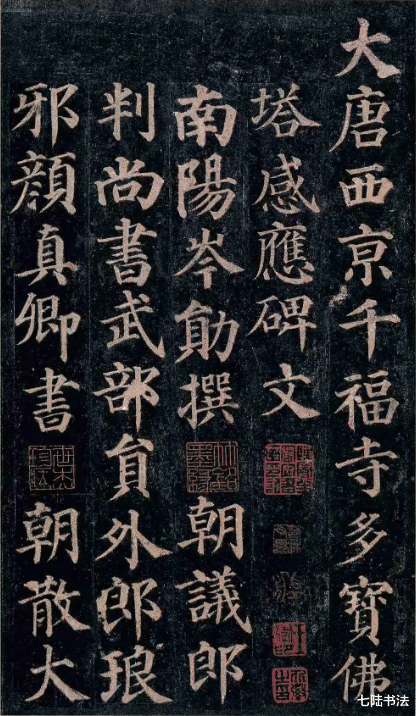 大唐西京千福寺多寶佛
塔感應碑文
南陽岑勛撰朝議郎
判尚書武部員外郎琅
邪顏真卿書朝散大
七陆书法